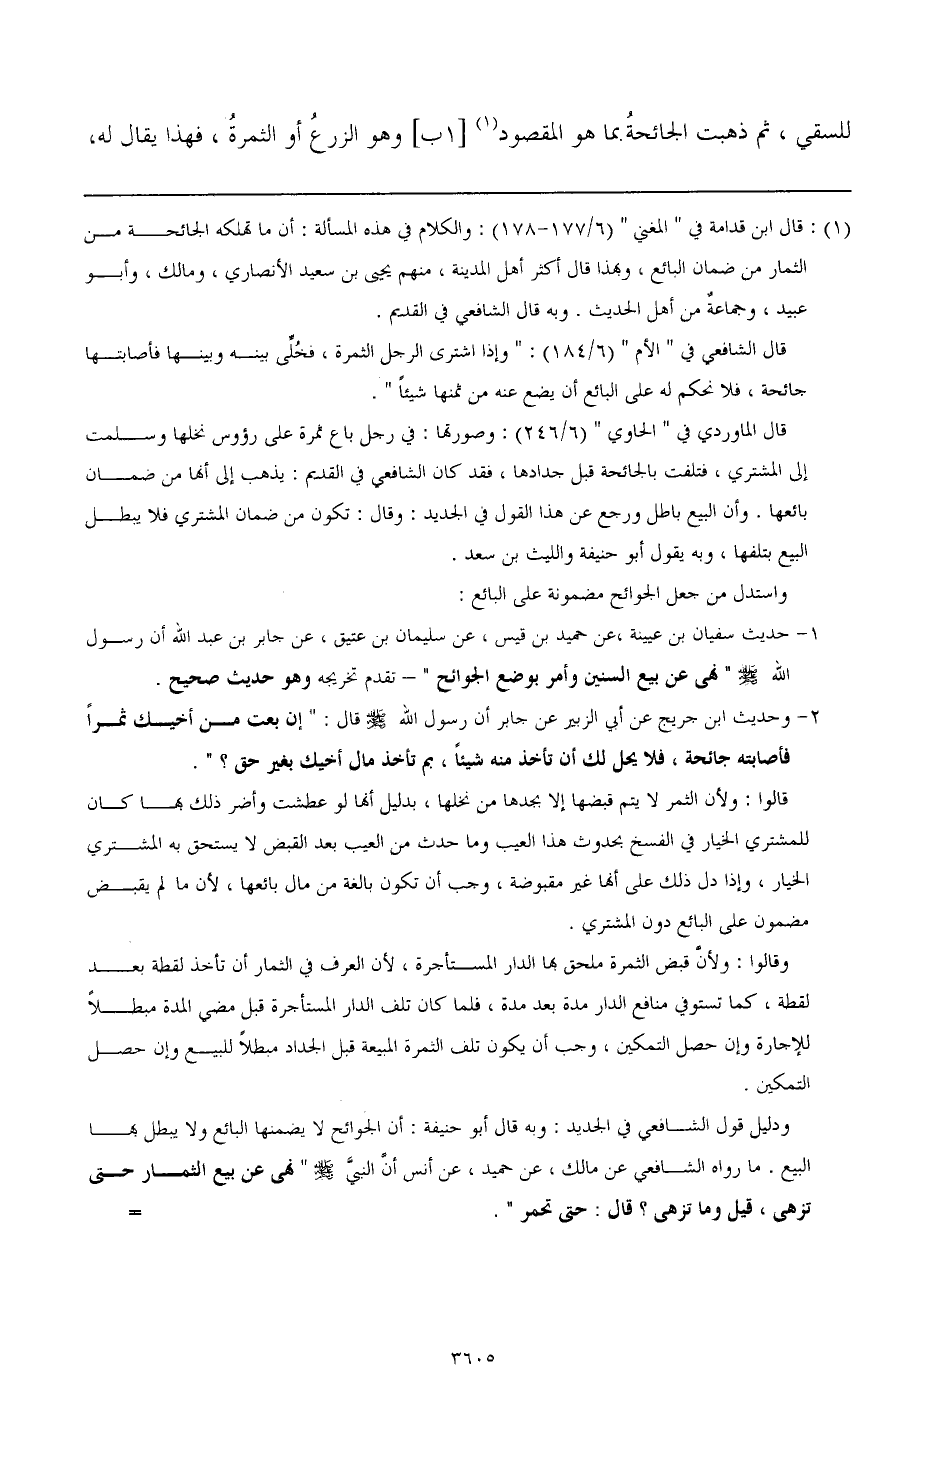 للسقي ، ثم ذهبت الجائحةُ بما هو المقصود(١) [١ب] وهو الزرعُ أو الثمرةُ ، فهذا يقال له،
(١) : قال ابن قدامة في " المغني " (١٧٧/٦-١٧٨) : والكلام في هذه المسألة : أن ما تهلكه الجائحـــة مـــن
الثمار من ضمان البائع ، وبهذا قال أكثر أهل المدينة ، منهم يحيى بن سعيد الأنصاري ، ومالك ، وأبـــو
عبيد ، وجماعةٌ من أهل الحديث . وبه قال الشافعي في القديم .
قال الشافعي في " الأم " (١٨٤/٦) : " وإذا اشترى الرجل الثمرة ، فخُلِّى بينـــه وبينـــها فأصابتـــها
جائحة ، فلا نحكم له على البائع أن يضع عنه من ثمنها شيئاً " .
قال الماوردي في " الحاوي " (٢٤٦/٦) : وصورتها : في رجل باع ثمرة على رؤوس نخلها وســـلمت
إلى المشتري ، فتلفت بالجائحة قبل جدادها ، فقد كان الشافعي في القديم : يذهب إلى أنها من ضمـــان
بائعها . وأن البيع باطل ورجع عن هذا القول في الجديد : وقال : تكون من ضمان المشتري فلا يبطـــل
البيع بتلفها ، وبه يقول أبو حنيفة والليث بن سعد .
واستدل من جعل الجوائح مضمونة على البائع :
١- حديث سفيان بن عيينة ،عن حميد بن قيس ، عن سليمان بن عتيق ، عن جابر بن عبد الله أن رســـول
الله ﷺ " نهى عن بيع السنين وأمر بوضع الجوائح " – تقدم تخريجه وهو حديث صحيح .
٢- وحديث ابن جريج عن أبي الزبير عن جابر أن رسول الله ﷺ قال : " إن بعت مـــن أخيـــك ثمـــراً
فأصابته جائحة ، فلا يحل لك أن تأخذ منه شيئاً ، بم تأخذ مال أخيك بغير حق ؟ " .
قالوا : ولأن الثمر لا يتم قبضها إلا بجدها من نخلها ، بدليل أنها لو عطشت وأضر ذلك بهـــا كـــان
للمشتري الخيار في الفسخ بحدوث هذا العيب وما حدث من العيب بعد القبض لا يستحق به المشـــتري
الخيار ، وإذا دل ذلك على أنها غير مقبوضة ، وجب أن تكون بالغة من مال بائعها ، لأن ما لم يقبـــض
مضمون على البائع دون المشتري .
وقالوا : ولأنَّ قبض الثمرة ملحق بها الدار المســـتأجرة ، لأن العرف في الثمار أن تأخذ لقطة بعـــد
لقطة ، كما تستوفي منافع الدار مدة بعد مدة ، فلما كان تلف الدار المستأجرة قبل مضي المدة مبطـــلاً
للإجارة وإن حصل التمكين ، وجب أن يكون تلف الثمرة المبيعة قبل الجداد مبطلاً للبيـــع وإن حصـــل
التمكين .
ودليل قول الشـــافعي في الجديد : وبه قال أبو حنيفة : أن الجوائح لا يضمنها البائع ولا يبطل بهـــا
البيع . ما رواه الشـــافعي عن مالك ، عن حميد ، عن أنس أنَّ النبيَّ ﷺ " نهى عن بيع الثمـــار حتـــى
تزهى ، قيل وما تزهى ؟ قال : حتى تحمر " . =
٣٦٠٥